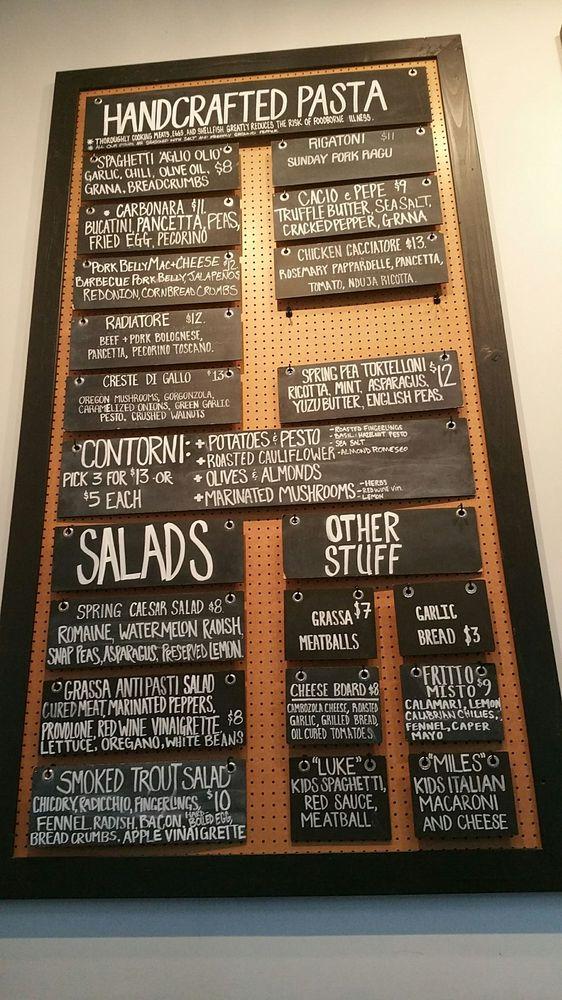 HANDCRAFTED PASTA
* THOROUGHLY COOKING MEATS, EGGS, AND SHELLFISH GREATLY REDUCES THE RISK OF FOODBORNE ILLNESS.
* ALL OUR ITEMS ARE SEASONED WITH SALT AND FRESHLY GROUND PEPPER.
"SPAGHETTI AGLIO OLIO"
GARLIC, CHILI, OLIVE OIL, $8
GRANA, BREADCRUMBS
• CARBONARA $11.
BUCATINI, PANCETTA, PEAS,
FRIED EGG, PECORINO
"PORK BELLY MAC+CHEESE $12
BARBECUE PORK BELLY, JALAPEÑOS
RED ONION, CORNBREAD CRUMBS
RADIATORE $12.
BEEF + PORK BOLOGNESE,
PANCETTA, PECORINO TOSCANO.
CRESTE DI GALLO $13
OREGON MUSHROOMS, GORGONZOLA,
CARAMELIZED ONIONS, GREEN GARLIC
PESTO, CRUSHED WALNUTS
RIGATONI $11
SUNDAY PORK RAGU
CACIO e PEPE $9
TRUFFLE BUTTER, SEA SALT,
CRACKED PEPPER, GRANA
CHICKEN CACCIATORE $13.
ROSEMARY PAPPARDELLE, PANCETTA,
TOMATO, NDUJA RICOTTA.
SPRING PEA TORTELLONI $12
RICOTTA, MINT, ASPARAGUS,
YUZU BUTTER, ENGLISH PEAS.
CONTORNI:
PICK 3 FOR $13 OR
$5 EACH
+ POTATOES & PESTO - ROASTED FINGERLINGS
- BASIL/HAZELNUT PESTO
- SEA SALT
+ ROASTED CAULIFLOWER - ALMOND ROMESCO
+ OLIVES & ALMONDS
+ MARINATED MUSHROOMS - HERBS
- RED WINE VIN.
- LEMON
SALADS
SPRING CAESAR SALAD $8
ROMAINE, WATERMELON RADISH,
SNAP PEAS, ASPARAGUS, PRESERVED LEMON.
GRASSA ANTIPASTI SALAD
CURED MEAT, MARINATED PEPPERS,
PROVOLONE, RED WINE VINAIGRETTE $8
LETTUCE, OREGANO, WHITE BEANS
SMOKED TROUT SALAD
CHICORY, RADICCHIO, FINGERLINGS, $10
FENNEL, RADISH, BACON, BOILED EGG,
BREAD CRUMBS, APPLE VINAIGRETTE
OTHER
STUFF
GRASSA $7
MEATBALLS
GARLIC
BREAD $3
CHEESE BOARD $8
CAMBOZOLA CHEESE, ROASTED
GARLIC, GRILLED BREAD,
OIL CURED TOMATOES
FRITTO
MISTO $9
CALAMARI, LEMON
CALABRIAN CHILIES,
FENNEL, CAPER
MAYO
"LUKE"
KIDS SPAGHETTI,
RED SAUCE,
MEATBALL
"MILES"
KIDS ITALIAN
MACARONI
AND CHEESE